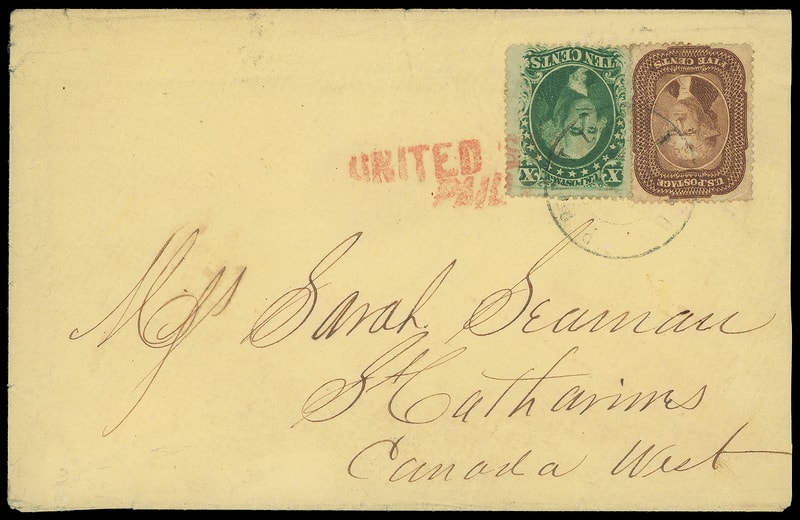 UNITED
PAID
TEN CENTS
X U.S. POSTAGE X
FIVE CENTS
U.S. POSTAGE
Miss Sarah Seaman
St Catharines
Canada West